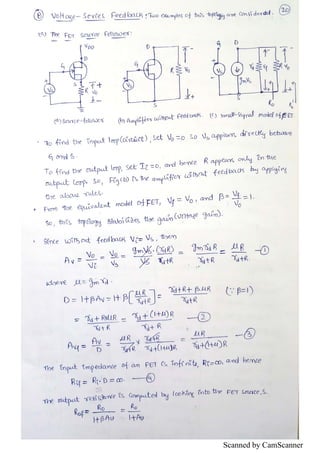 (B) Voltage-Series Feedback: Two examples of this topology are considered. (30)
(A) The FET Source Follower:
VDD
D
G
S
R
Vo
Vs
D
G
S
R
Vf
Vs
G
D
Vs
gmVi
rd
R
Vf
Vo
S
Ro
(a) source-follower (b) Amplifier without Feedback (c) small-signal model of FET
To find the input loop (circuit), set Vo=0 so Vs appears directly between
G and S.
To find the output loop, set Ii=0, and hence R appears only in the
output loop. So, Fig (b) is the amplifier without feedback by applying
the above rules.
From the equivalent model of FET, Vf = Vo, and β = Vf/Vo = 1.
So, this topology stabilizes the gain (voltage gain).
Since without feedback Vi = Vs, then
Av = Vo/Vi = Vo/Vs = gmVs·(rdR)/Vs rd+R = gm rd R/rd+R = μR/rd+R —(1)
where μ = gm rd.
D = 1+βAv = 1+β[μR/rd+R] = rd+R+βμR/rd+R (∵ β=1)
= rd+R+μR/rd+R = rd+(1+μ)R/rd+R —(2)
Avf = Av/D = μR/rd+R × rd+R/rd+(1+μ)R = μR/rd+(1+μ)R —(3)
The input impedance of an FET is infinite, Ri=∞, and hence
Rif = Ri·D = ∞ —(4)
The output resistance is computed by looking into the FET source, S.
Rof = Ro/1+βAv = Ro/1+Av
Scanned by CamScanner